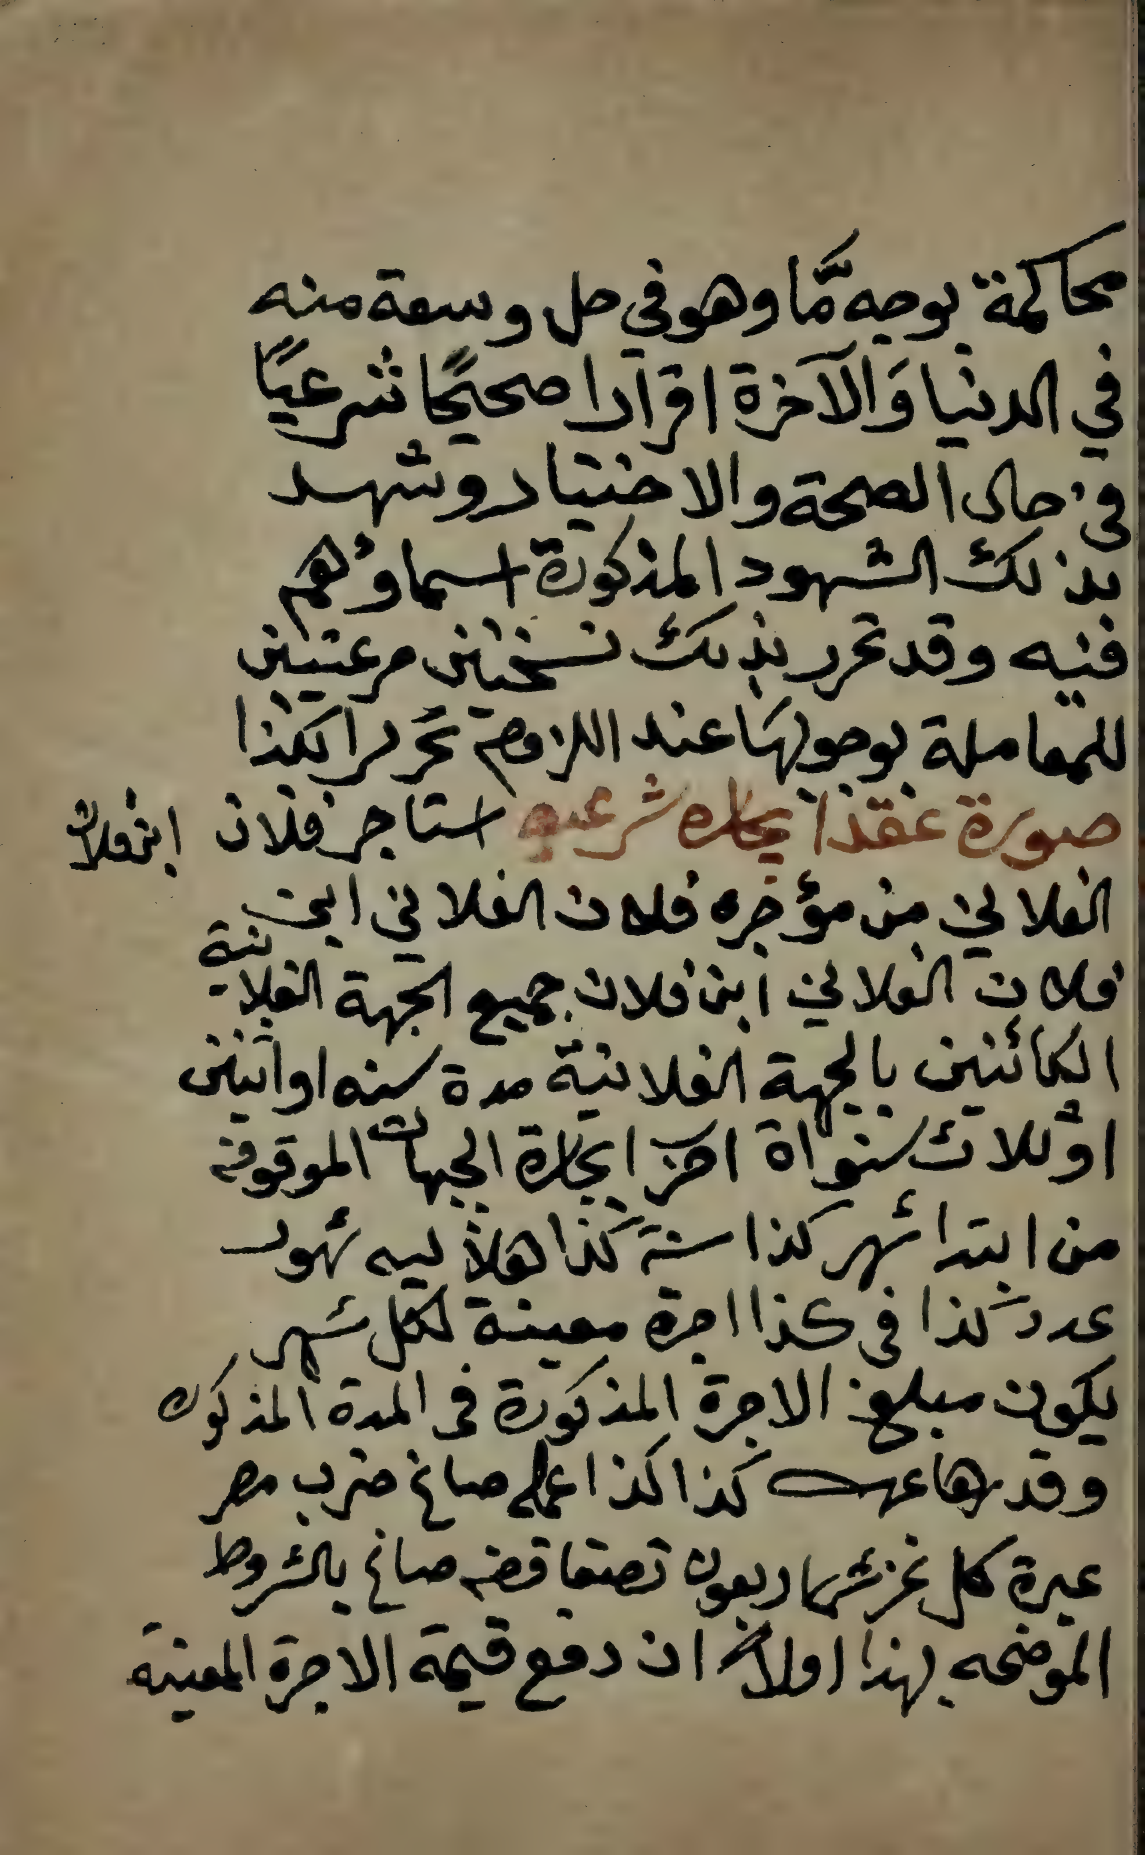 محاكمة بوجه مَّا وهو في حل وسعة منه
في الدنيا وَالآخرة اقرارا صحيحًا شرعيًا
في حال الصحة والاختيار وشهد
بذلك الشهود المذكورة اسماؤهم
فيه وقد تحرر بذلك نسختين مرعيتين
للمعاملة بوجوبهَا عند اللزوم تحريرا بكذا
صورة عقد ايجاره شرعيه استاجر فلان ابن فلان
الفلاني من مؤجره فلان الفلاني ابن
فلان الفلاني ابن فلان جميع الجهة الفلانية
الكائنين بالجهة الفلانية مدة سنه او اثنين
او ثلاث سنواة اخر ايجارة الجهات الموقوفه
من ابتدا شهر كذا سنة كذا هلاليه شهور
عدد كذا في كذا اجرة معينة لكل شهر
يكون مبلغ الاجرة المذكورة في المدة المذكوره
وقدرها كذا كذا عمله صاغ ضرب مصر
عبرة كل غرش اربعون نصفا فضه صاغ بالشروط
الموضحه بهذا اولا ان دفع قيمة الاجرة المعينة